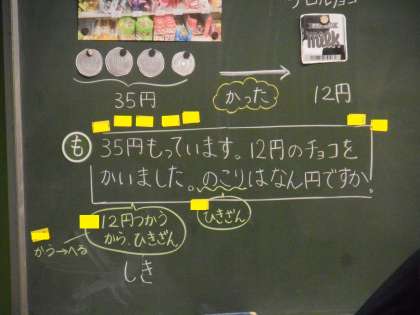 チロルチョコ
milk
35円
かった
12円
も
35円もっています。12円のチョコを
かいました。のこりはなん円ですか。
12円つかう
から、ひきざん
ひきざん
かう→へる
しき